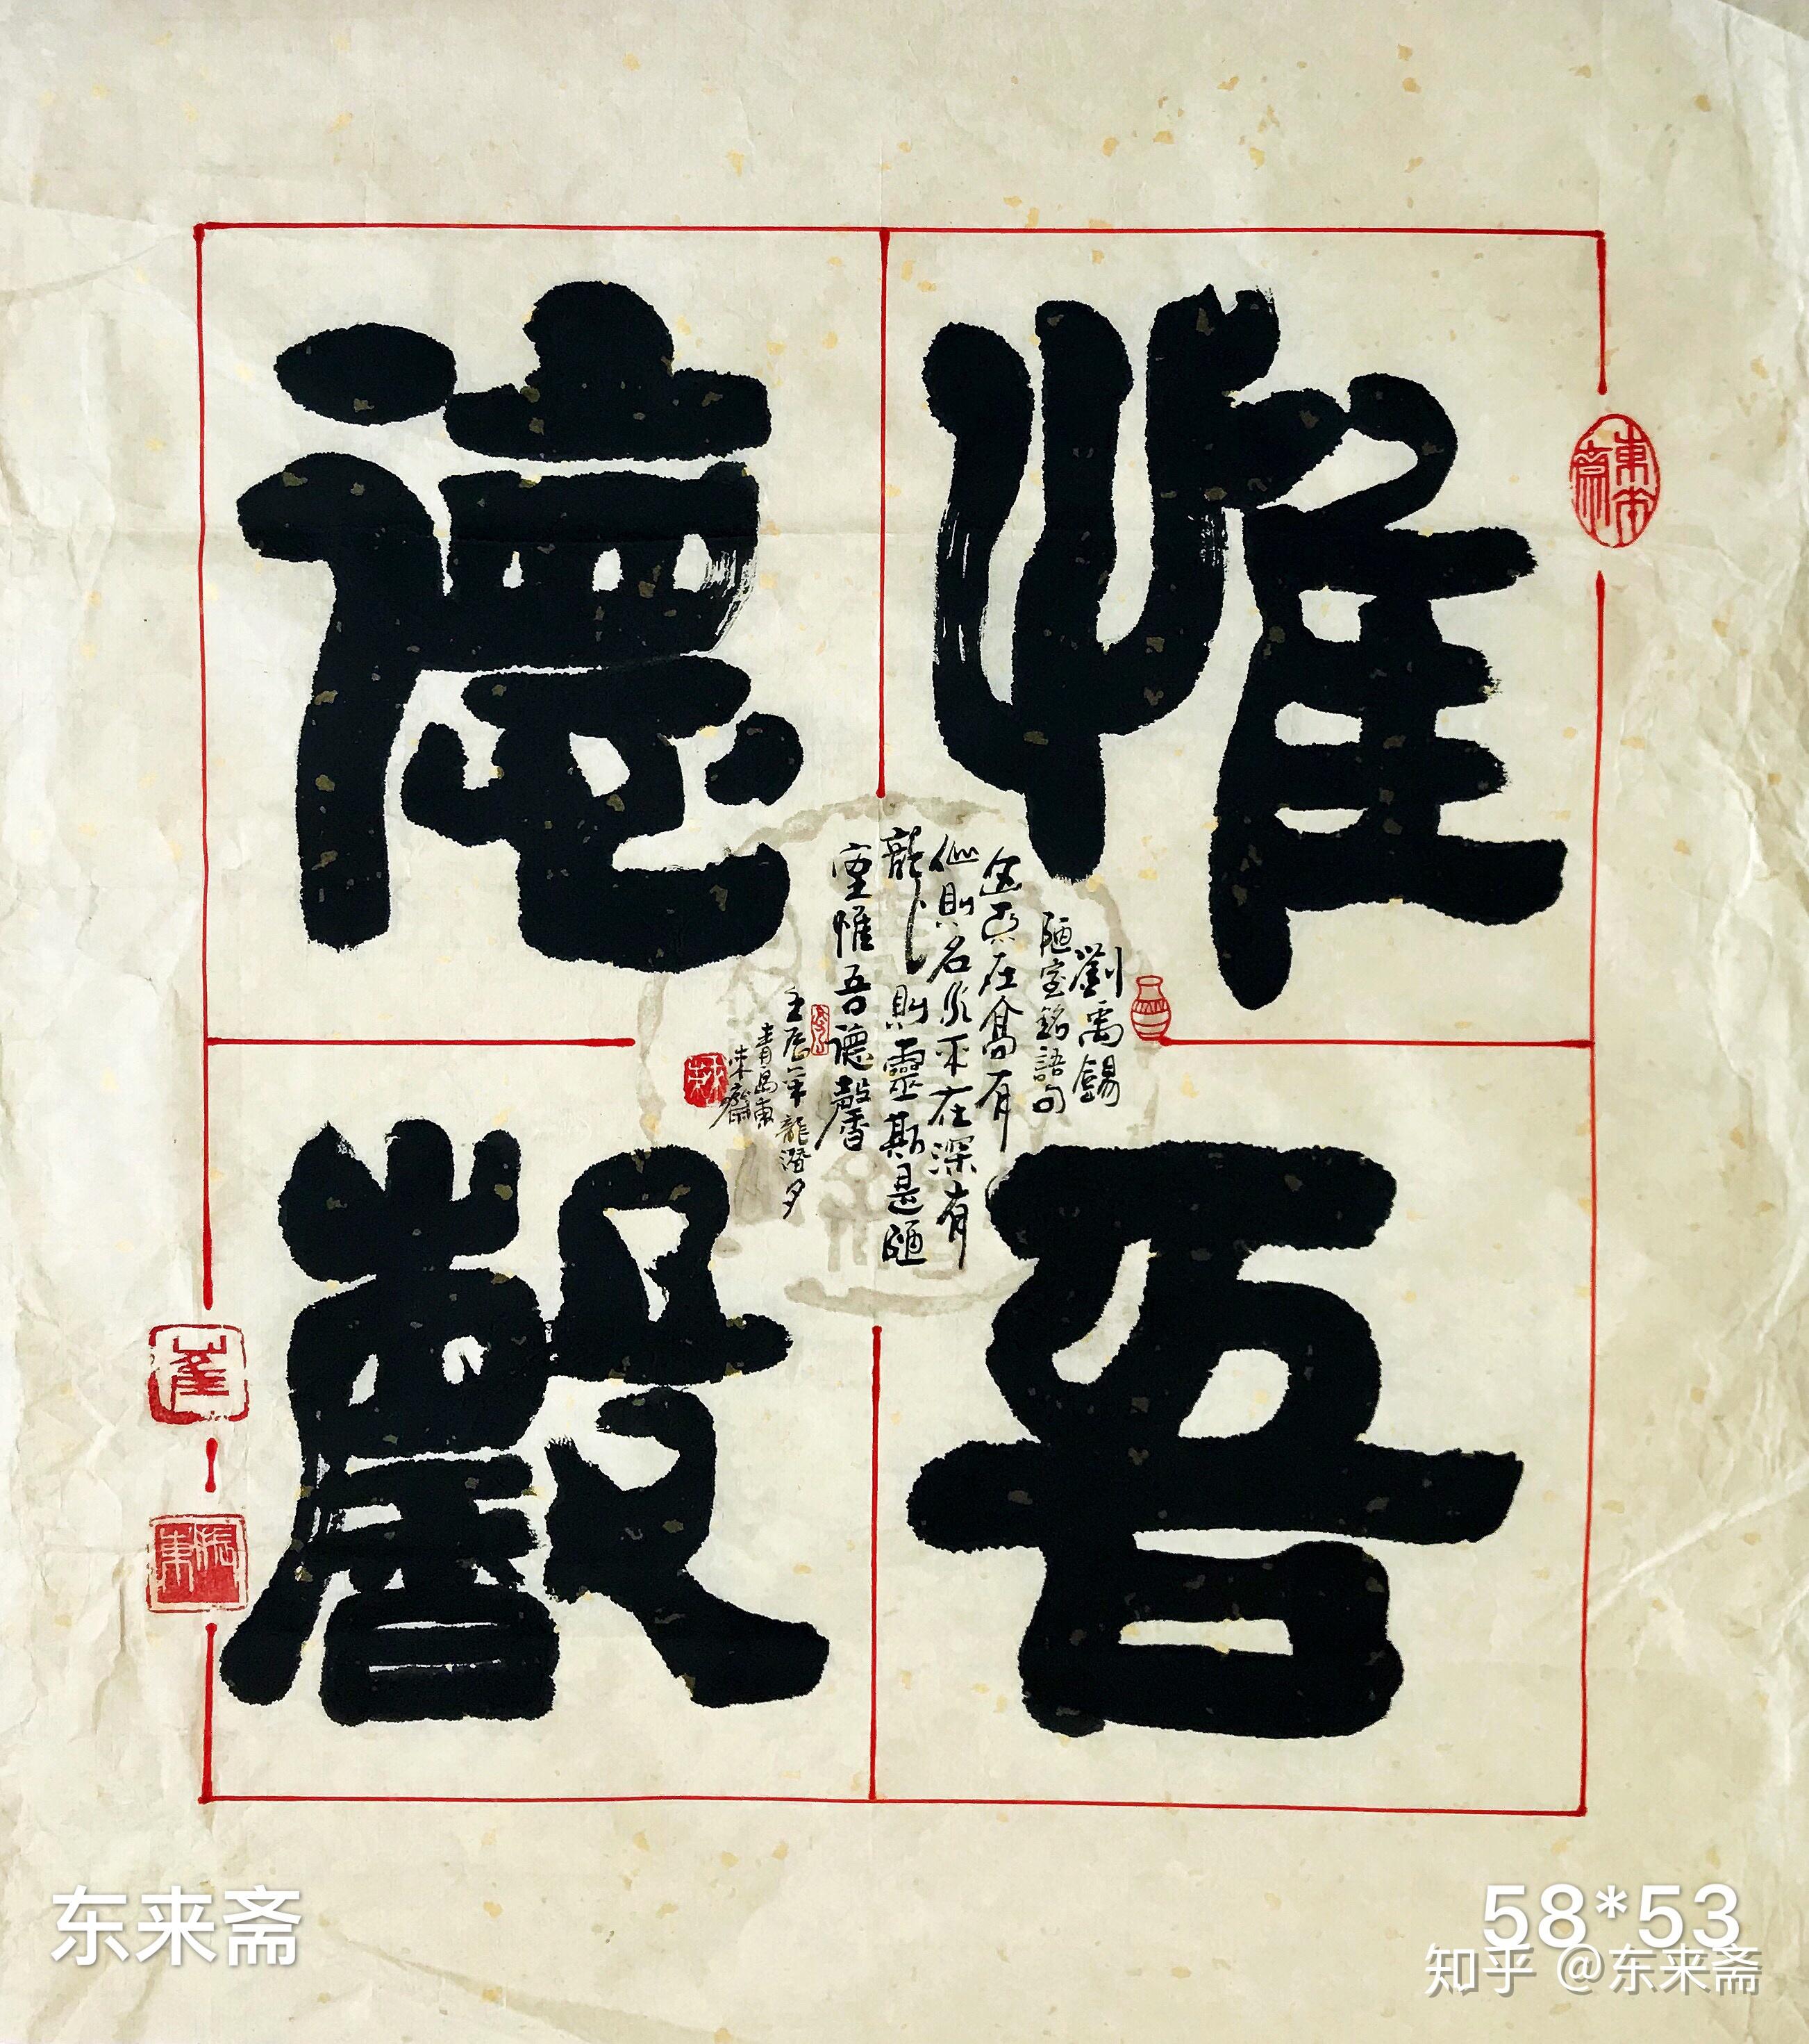 惟吾
德馨
劉禹錫
陋室銘語句
山不在高有
仙則名水不在深有
龍則靈斯是陋
室惟吾德馨
壬辰年龍潛夕
青島東
来齋
東来齋
东来斋
58*53
知乎 @东来斋